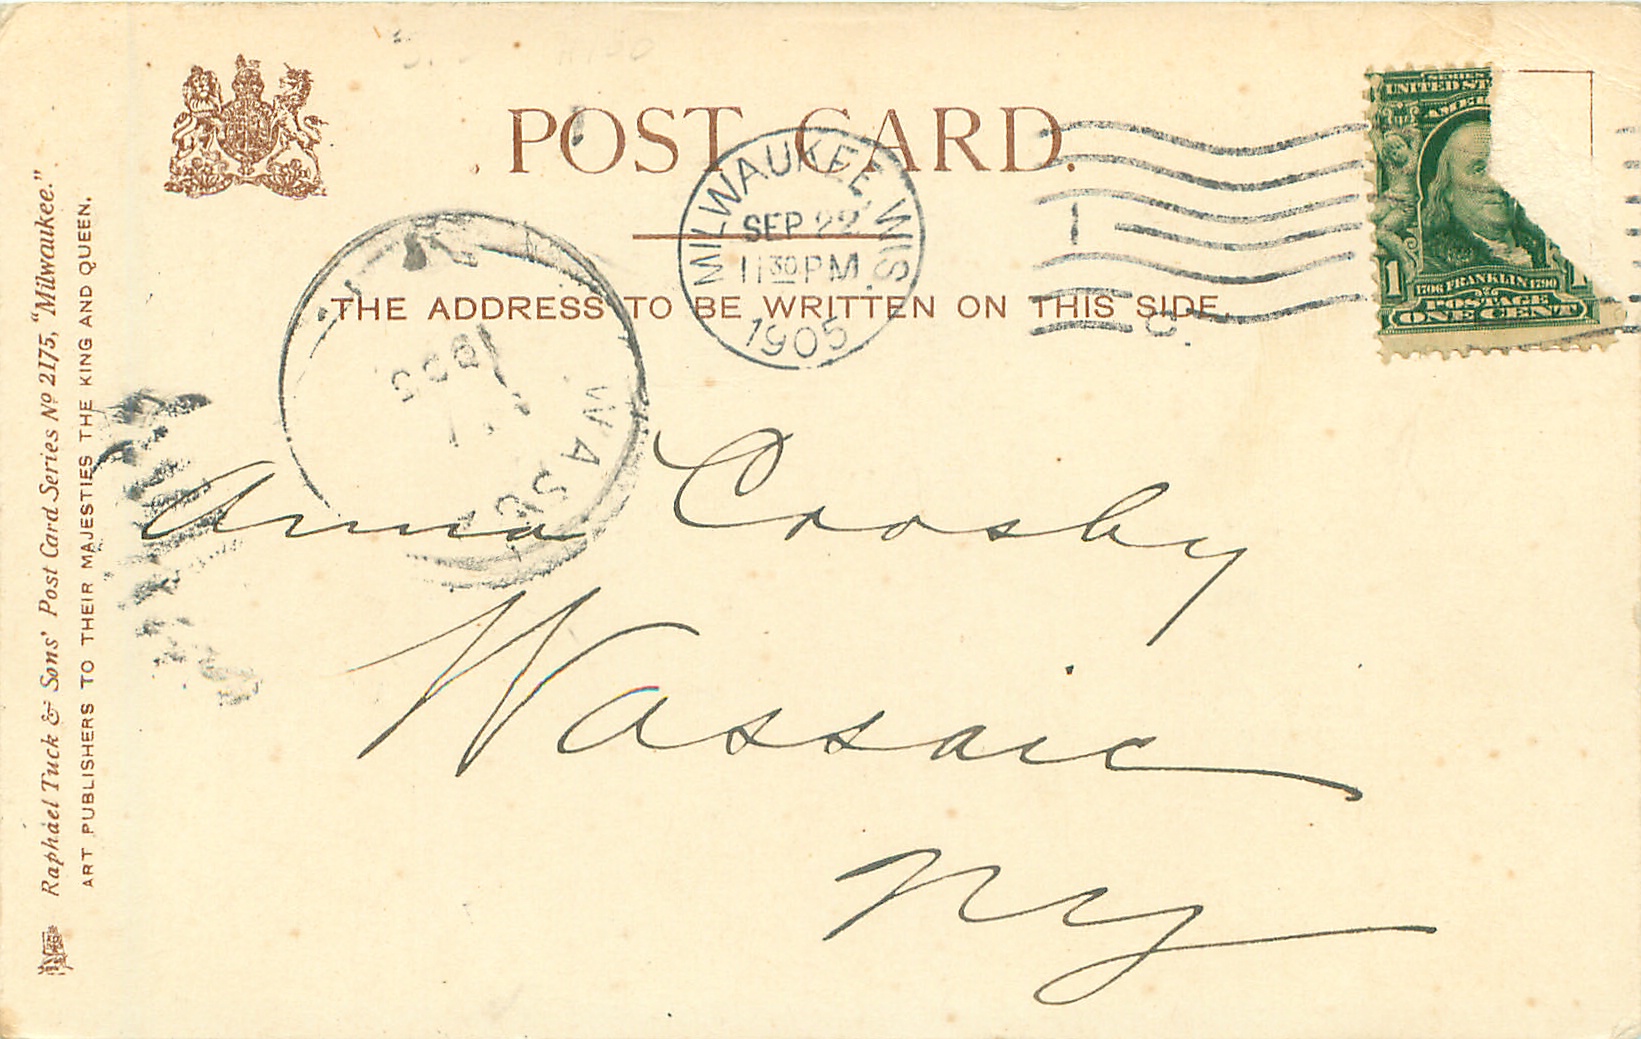 POST CARD.
THE ADDRESS TO BE WRITTEN ON THIS SIDE.
MILWAUKEE, WIS.
SEP 22
11 30 PM
1905
1
C.
SERIES
UNITED ST
AMER
1706 FRANKLIN 1790
POSTAGE
1
ONE CENT
WAS
1905
Anna Crosby
Wassaic
NY
Raphael Tuck & Sons' Post Card Series No 2175, "Milwaukee."
ART PUBLISHERS TO THEIR MAJESTIES THE KING AND QUEEN.